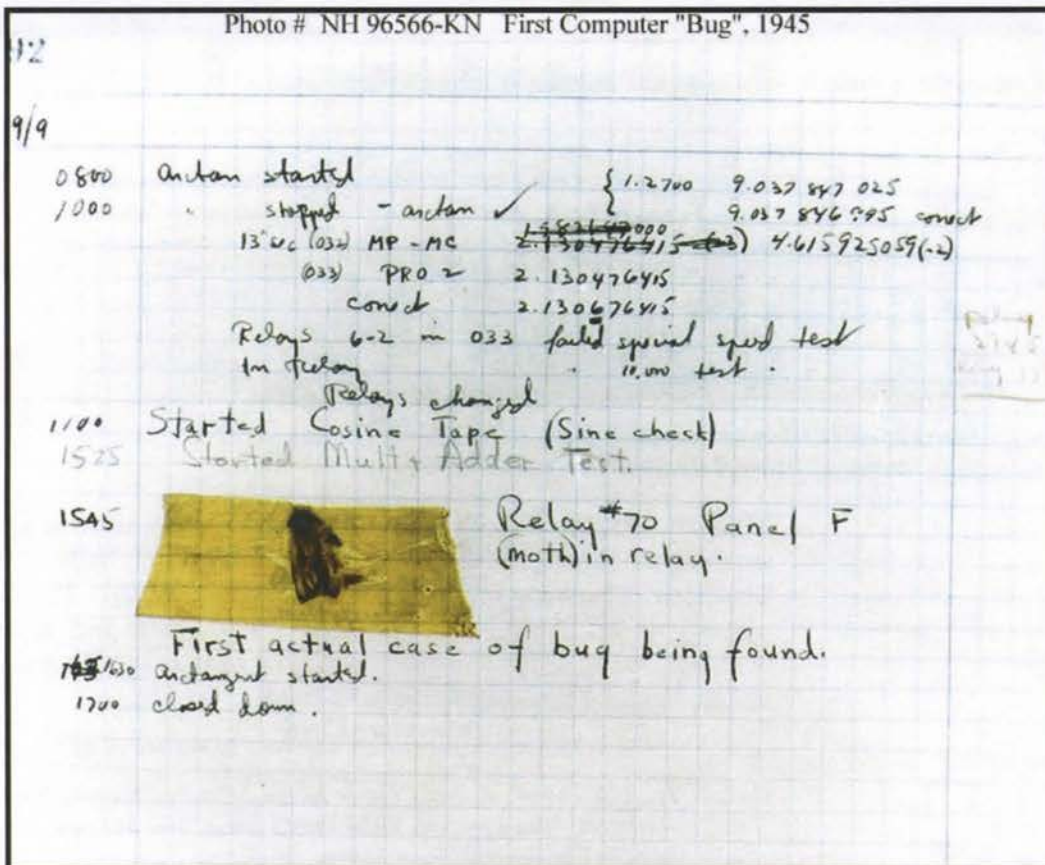 Photo # NH 96566-KN First Computer "Bug", 1945
92
9/9
0800 arctan started { 1.2700 9.037 847 025
1000 " stopped - arctan ✓ { 9.037 846 995 correct
13"uc (032) MP - MC 2.130476415 (-3) 4.615925059(-2)
(033) PRO 2 2.130476415
correct 2.130676415
Relays 6-2 in 033 failed special speed test
In relay " 10,000 test "
Relays changed
1100 Started Cosine Tape (Sine check)
1525 Started Mult + Adder Test.
1545 Relay #70 Panel F
(moth) in relay.
First actual case of bug being found.
1630 arctangent started.
1700 closed down.